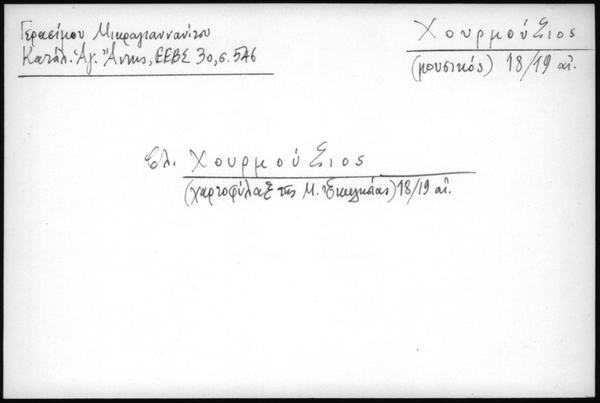 Γερασίμου Μικραγιαννανίτου
Κατάλ. Ἁγ. Ἄννης, ΕΕΒΣ 30, σ. 546
Χουρμούζιος
(μουσικός) 18/19 αἰ.
βλ. Χουρμούζιος
(χαρτοφύλαξ τῆς Μ. Ἐκκλησίας) 18/19 αἰ.